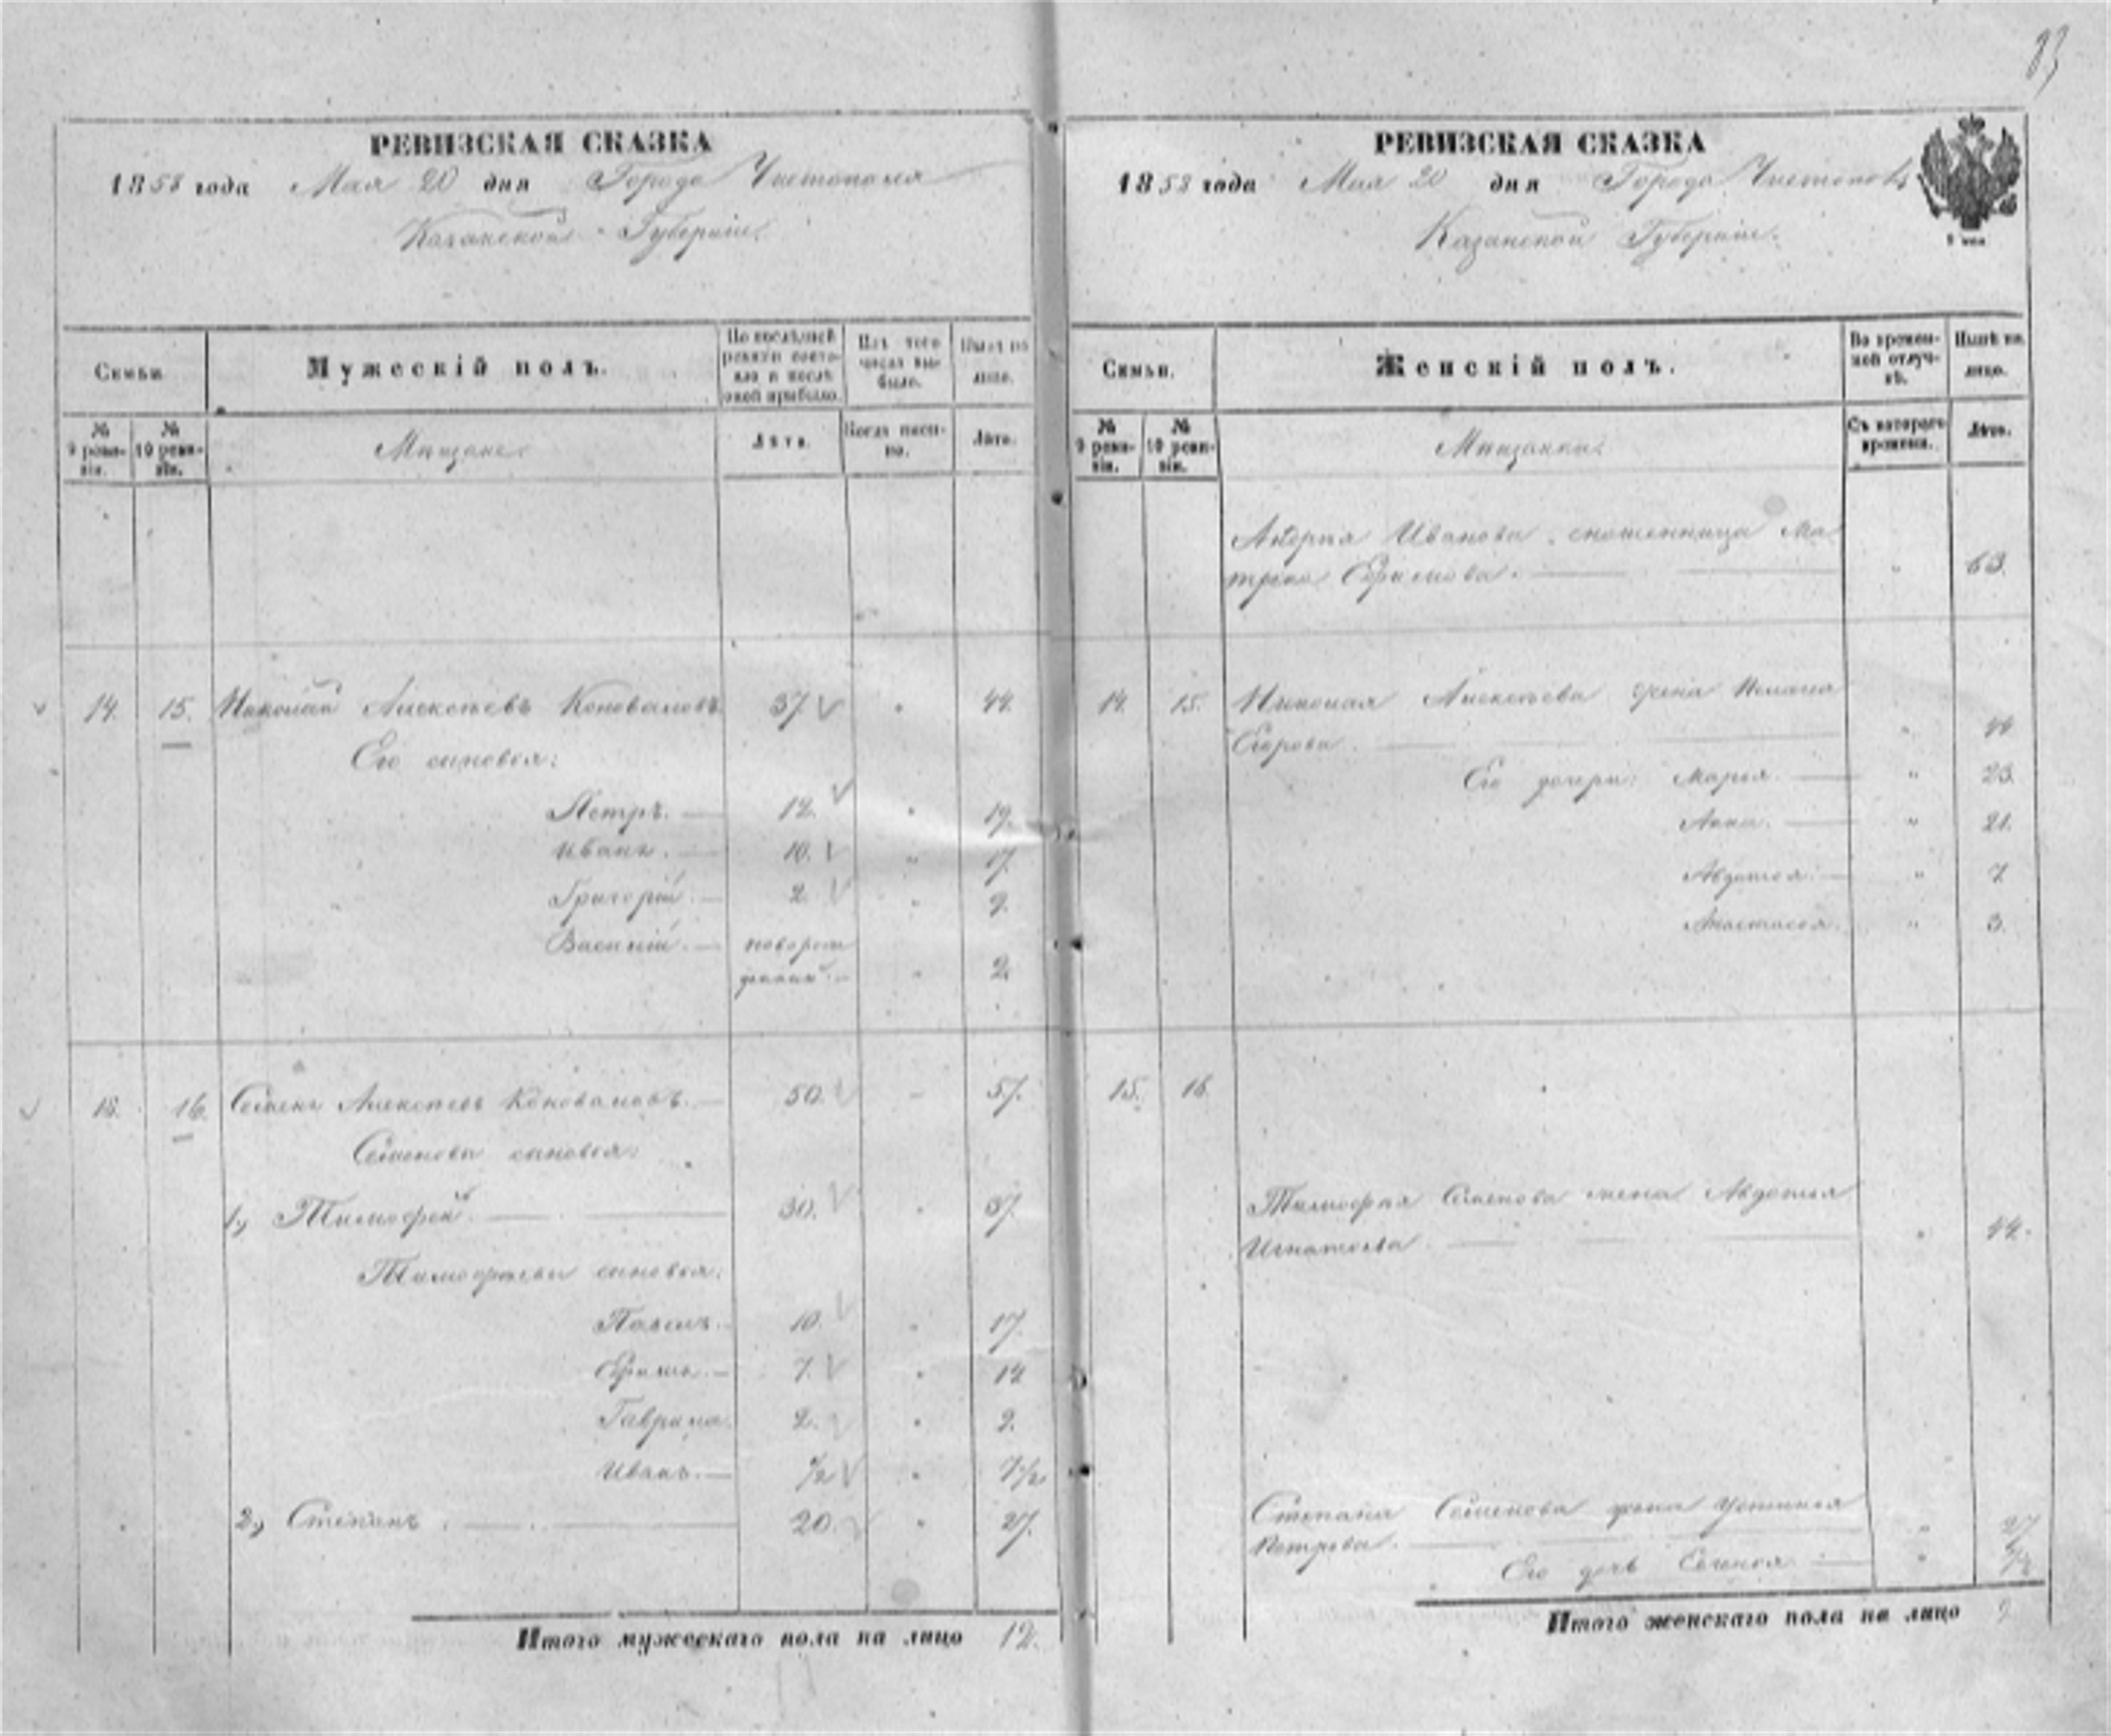 83
РЕВИЗСКАЯ СКАЗКА
1858 года Мая 20 дня Города Чистополя
Казанской Губерніи.
Семьи.
Мужескій полъ.
По послѣдней ревизіи состояло и послѣ оной прибыло.
Изъ того числа выбыло.
Нынѣ на лицо.
№ 9 ревизіи.
№ 10 ревизіи.
Мѣщане.
Лѣта.
Когда именно.
Лѣта.
14. 15. Николай Алексѣевъ Коноваловъ. 37. " 44.
Его сыновья:
Петръ. — 12. " 19.
Иванъ. — 10. " 17.
Григорій. — 2. " 9.
Василій. — новорож
денный. — " 2.
15. 16. Семенъ Алексѣевъ Коноваловъ. — 50. " 57.
Семеновы сыновья:
1, Тимофей. — 30. " 37.
Тимофеевы сыновья:
Павелъ. — 10. " 17.
Ефимъ. — 7. " 14
Гаврила. 2. " 9.
Иванъ. — 1/2 " 7 1/2
2, Степанъ. — 20. " 27.
Итого мужескаго пола на лицо 12.
РЕВИЗСКАЯ СКАЗКА
1858 года Мая 20 дня Города Чистополя
Казанской Губерніи.
Семьи.
Женскій полъ.
Во временной отлучкѣ.
Нынѣ на лицо.
№ 9 ревизіи.
№ 10 ревизіи.
Мѣщанки.
Съ котораго времени.
Лѣта.
Иванова Ма
трена Ефимова. — " 63.
14. 15. Николая Алексѣева жена
Егорова. — " 44
Его дочери: Марья. — " 23.
Анна. — " 21.
Авдотья. — " 7
Анастасья. " 3.
15. 16.
Тимофея Семенова жена Авдотья
Игнатьева. — " 44.
Степана Семенова жена Устинья
Петрова. — " 27
Его дочь —
Итого женскаго пола на лицо 9